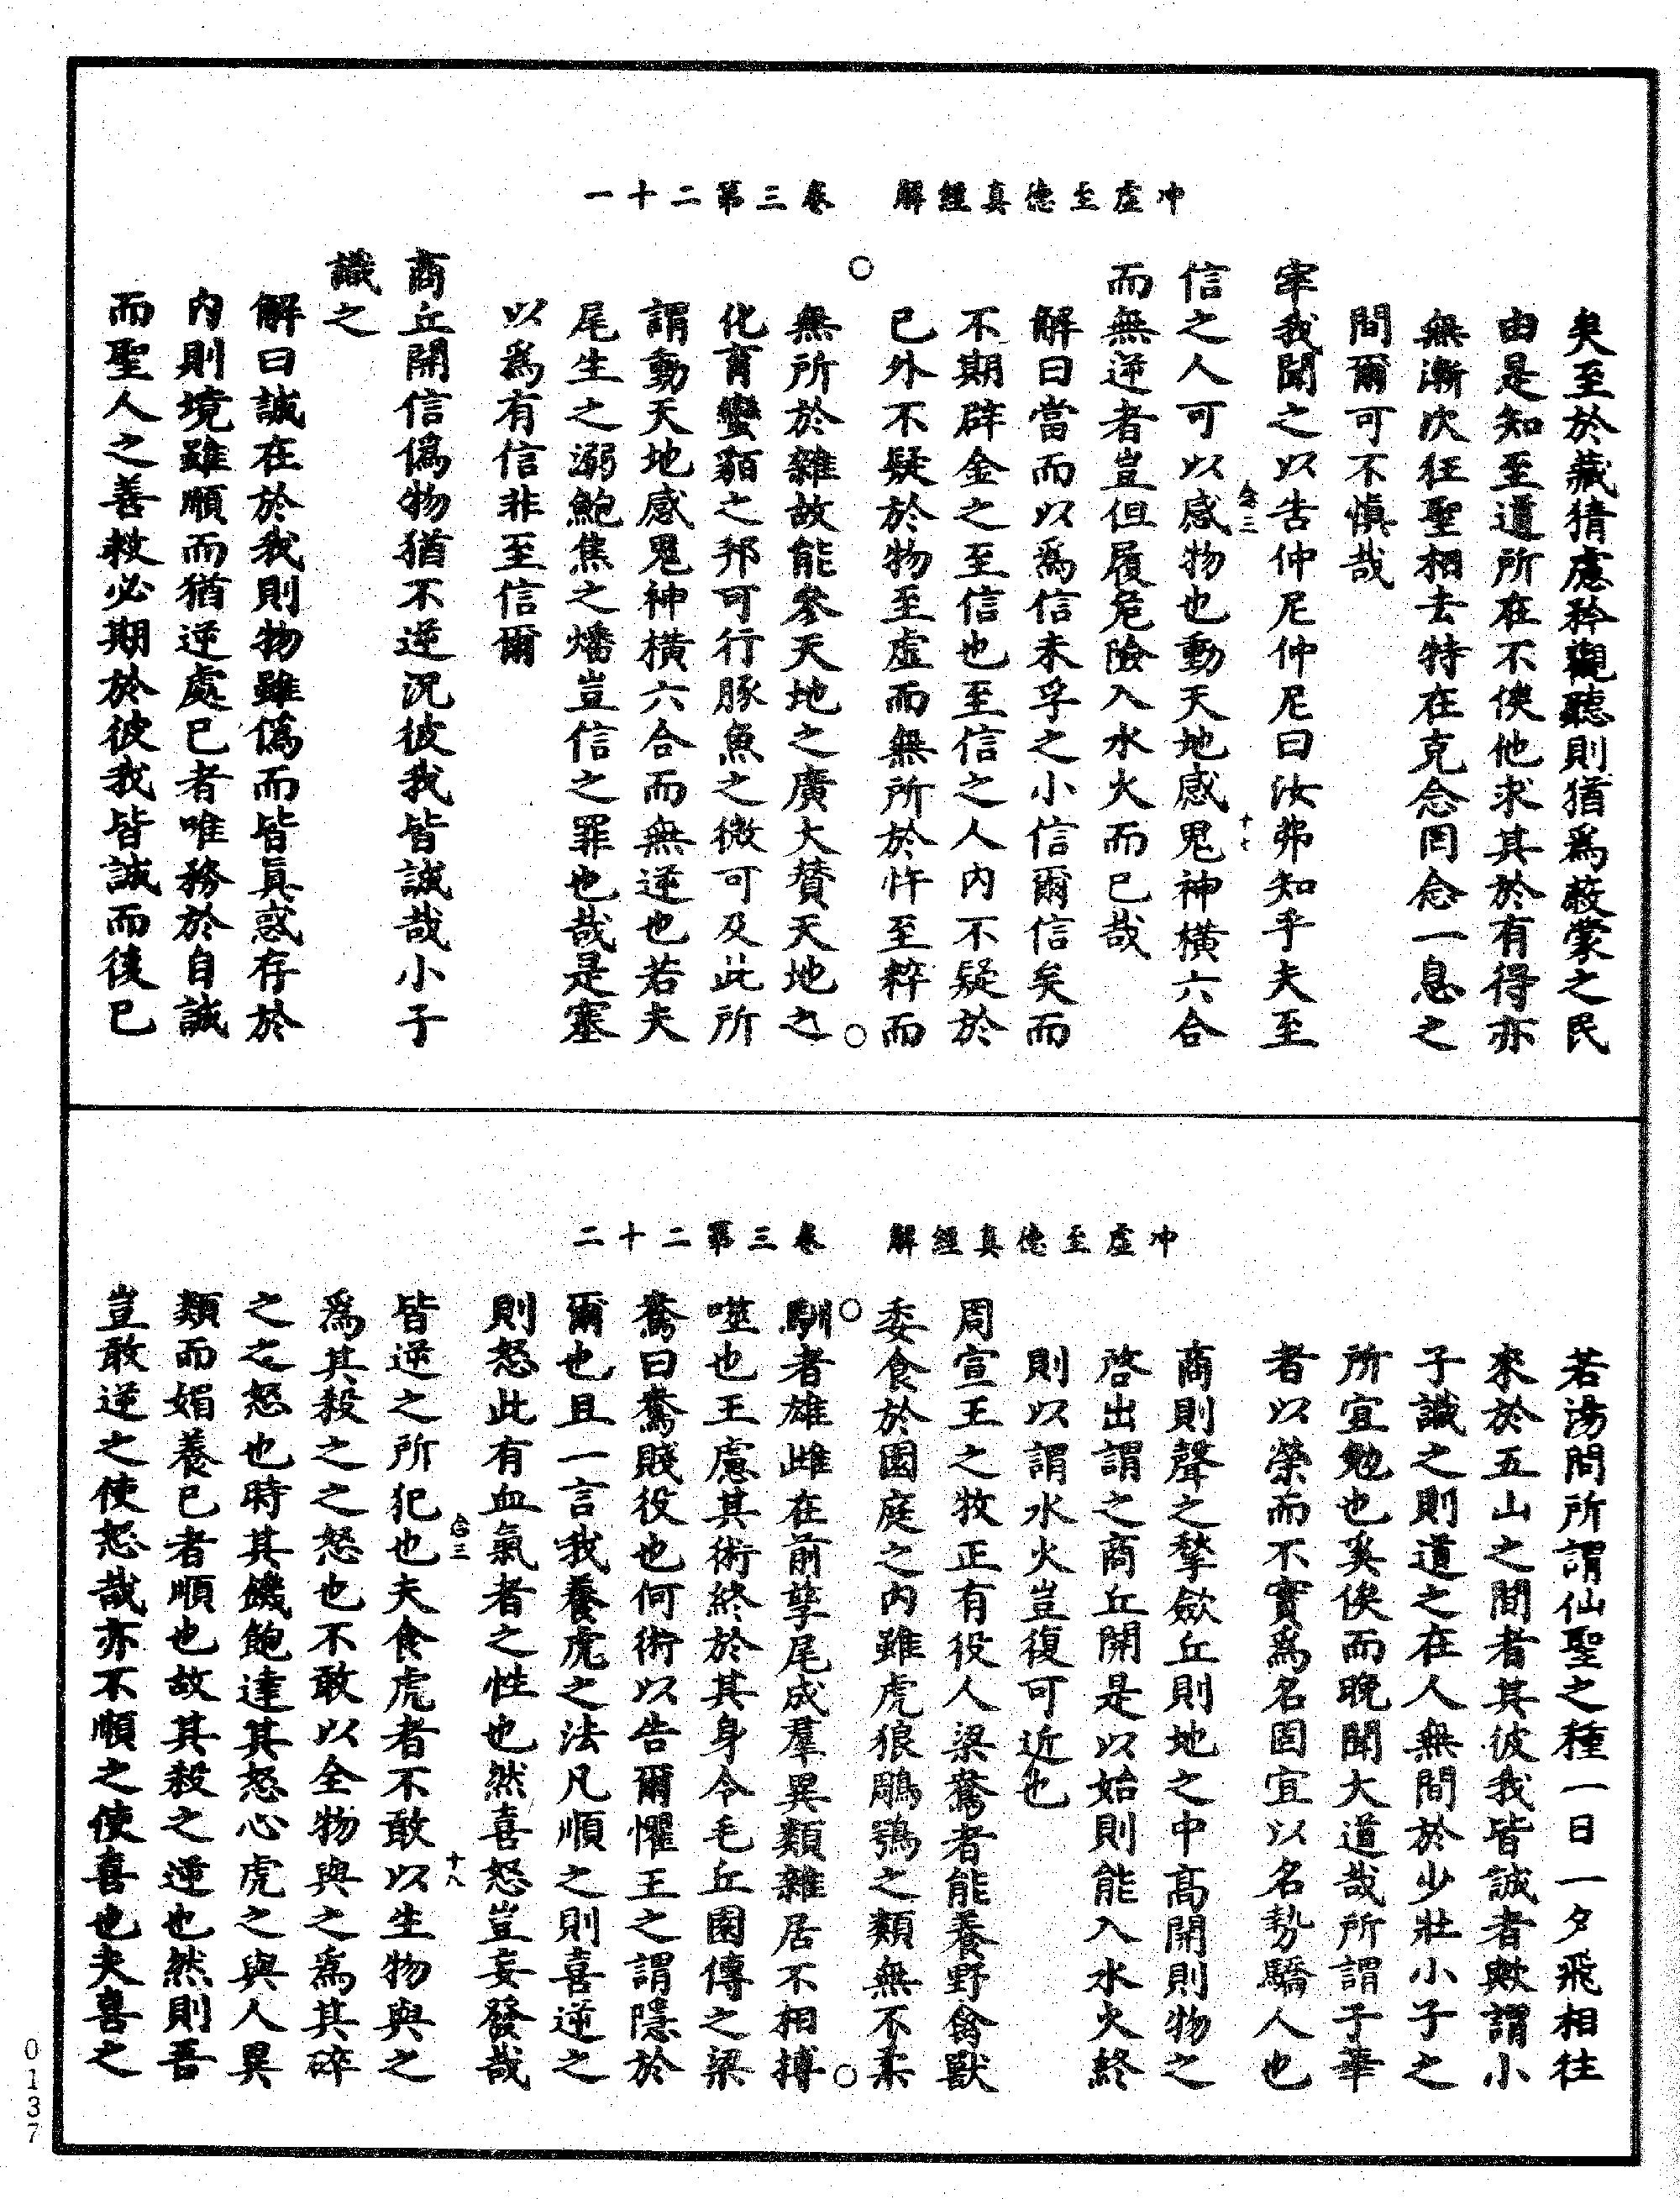 冲虛至德真經解　卷三第二十一
矣至於藏猜慮矜觀聽則猶爲蔽蒙之民
由是知至道所在不俟他求其於有得亦
無漸次狂聖相去特在克念罔念一息之
間爾可不慎哉
宰我聞之以告仲尼仲尼曰汝弗知乎夫至
信之人可以感物也動天地感鬼神橫六合
而無逆者豈但履危險入水火而已哉
解曰當而以爲信未孚之小信爾信矣而
不期辟金之至信也至信之人內不疑於
已外不疑於物至虛而無所於忤至粹而
無所於雜故能參天地之廣大贊天地之
化育蠻貊之邦可行豚魚之微可及此所
謂動天地感鬼神橫六合而無逆也若夫
尾生之溺鮑焦之燔豈信之罪也哉是塞
以爲有信非至信爾
商丘開信僞物猶不逆況彼我皆誠哉小子
識之
解曰誠在於我則物雖僞而皆真惑存於
內則境雖順而猶逆處已者唯務於自誠
而聖人之善救必期於彼我皆誠而後已
合三
十七
冲虛至德真經解　卷三第二十二
若湯問所謂仙聖之種一日一夕飛相往
來於五山之間者其彼我皆誠者歟謂小
子識之則道之在人無間於少壯小子之
所宜勉也奚俟而晚聞大道哉所謂子華
者以榮而不實爲名固宜以名勢驕人也
商則聲之揫歛丘則地之中高開則物之
啓出謂之商丘開是以始則能入水火終
則以謂水火豈復可近也
周宣王之牧正有役人梁鴦者能養野禽獸
委食於園庭之內雖虎狼鵰鶚之類無不柔
馴者雄雌在前孳尾成羣異類雜居不相搏
噬也王慮其術終於其身令毛丘園傳之梁
鴦曰鴦賤役也何術以告爾懼王之謂隱於
爾也且一言我養虎之法凡順之則喜逆之
則怒此有血氣者之性也然喜怒豈妄發哉
皆逆之所犯也夫食虎者不敢以生物與之
爲其殺之之怒也不敢以全物與之爲其碎
之之怒也時其饑飽達其怒心虎之與人異
類而媚養已者順也故其殺之逆也然則吾
豈敢逆之使怒哉亦不順之使喜也夫喜之
合三
十八
0137